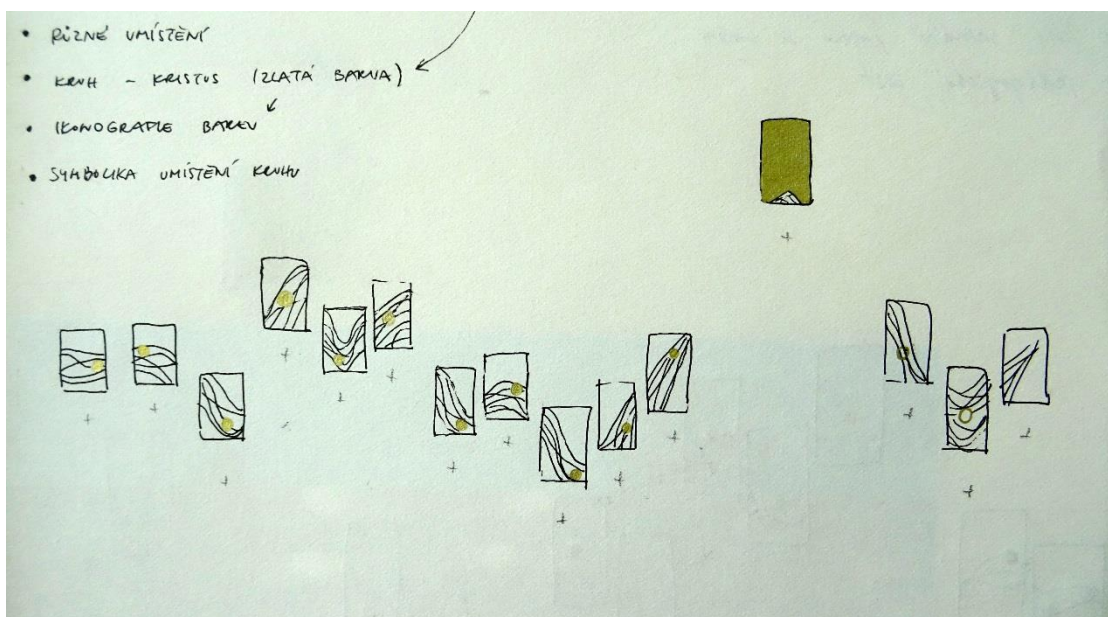 • RŮZNÉ UMÍSTĚNÍ
• KRUH - KRISTUS (ZLATÁ BARVA)
• IKONOGRAFIE BAREV
• SYMBOLIKA UMÍSTĚNÍ KRUHU